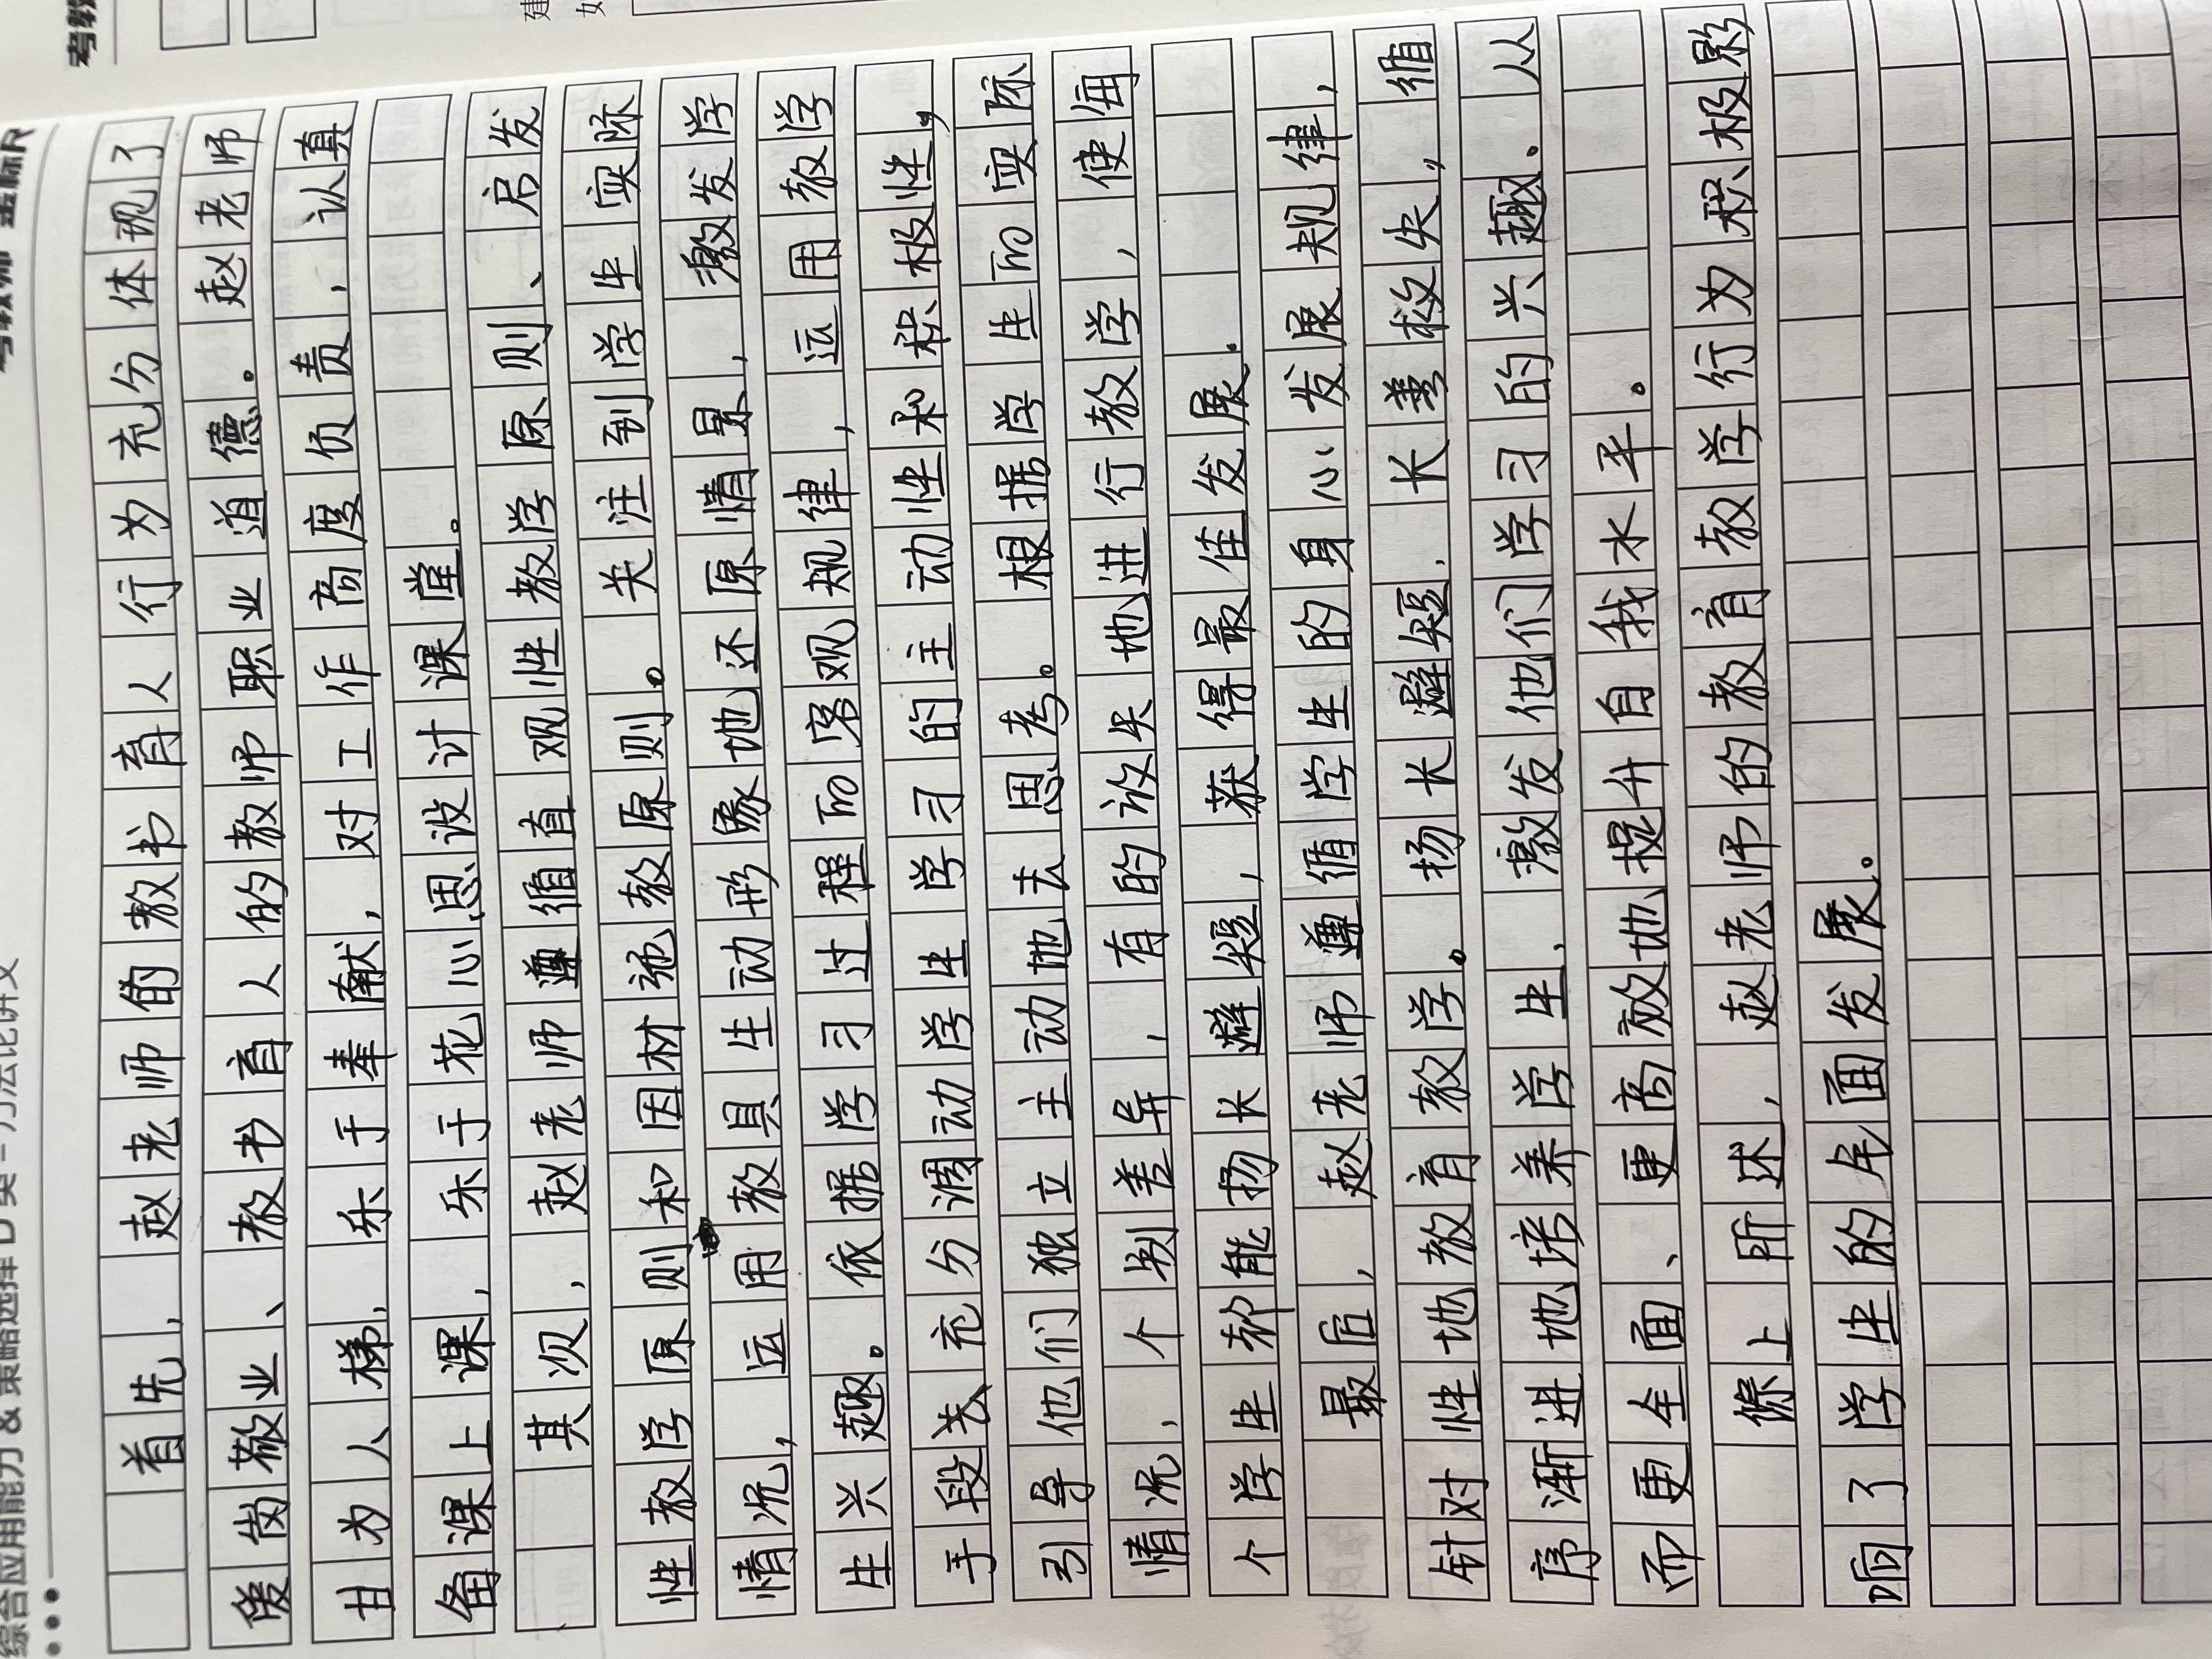 综合应用能力 & 策略选择 D 类 - 方法论讲义
首先，赵老师的教书育人行为充分体现了
爱岗敬业、教书育人的教师职业道德。赵老师
甘为人梯，乐于奉献，对工作高度负责，认真
备课上课，乐于花心思设计课堂。
其次，赵老师遵循直观性教学原则、启发
性教学原则和因材施教原则。关注到学生实际
情况，运用教具生动形象地还原情景，激发学
生兴趣。依据学习过程的客观规律，运用教学
手段去充分调动学生学习的主动性和积极性，
引导他们独立主动地去思考。根据学生的实际
情况，个别差异，有的放矢地进行教学，使每
个学生都能扬长避短，获得最佳发展。
最后，赵老师遵循学生的身心发展规律，
针对性地教育教学。扬长避短，长善救失，循
序渐进地培养学生，激发他们学习的兴趣。从
而更全面、更高效地提升自我水平。
综上所述，赵老师的教育教学行为积极影
响了学生的全面发展。